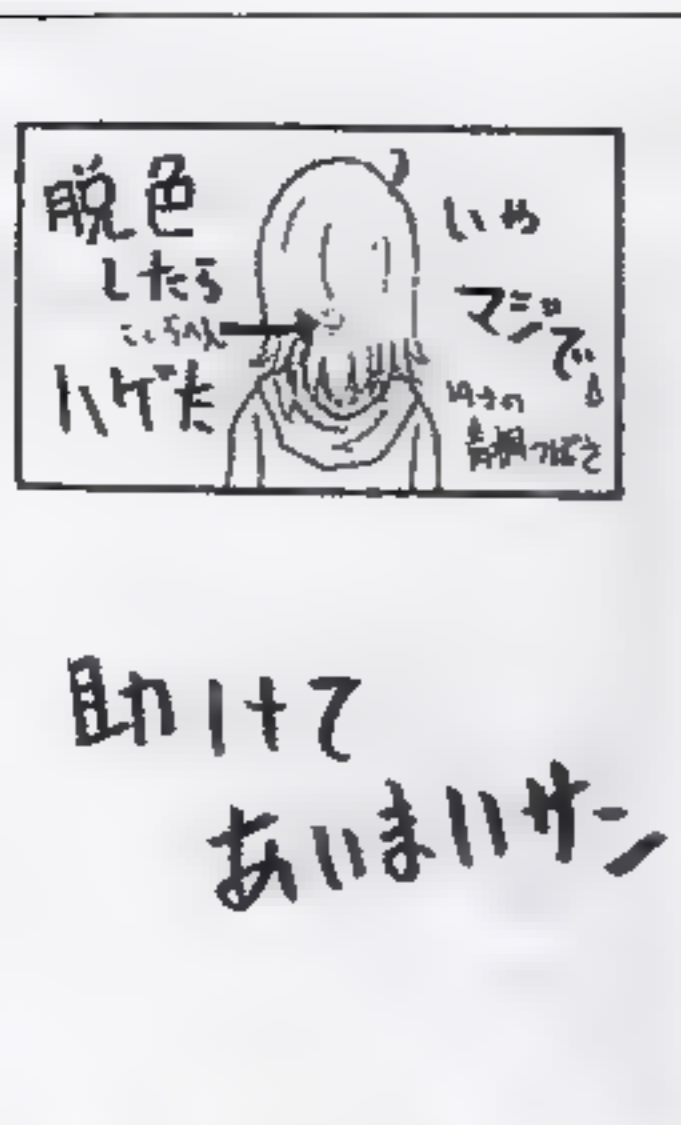 脱色
したら
ここらへん
ハゲた
いや
マジで。
助けて
あいまいサン